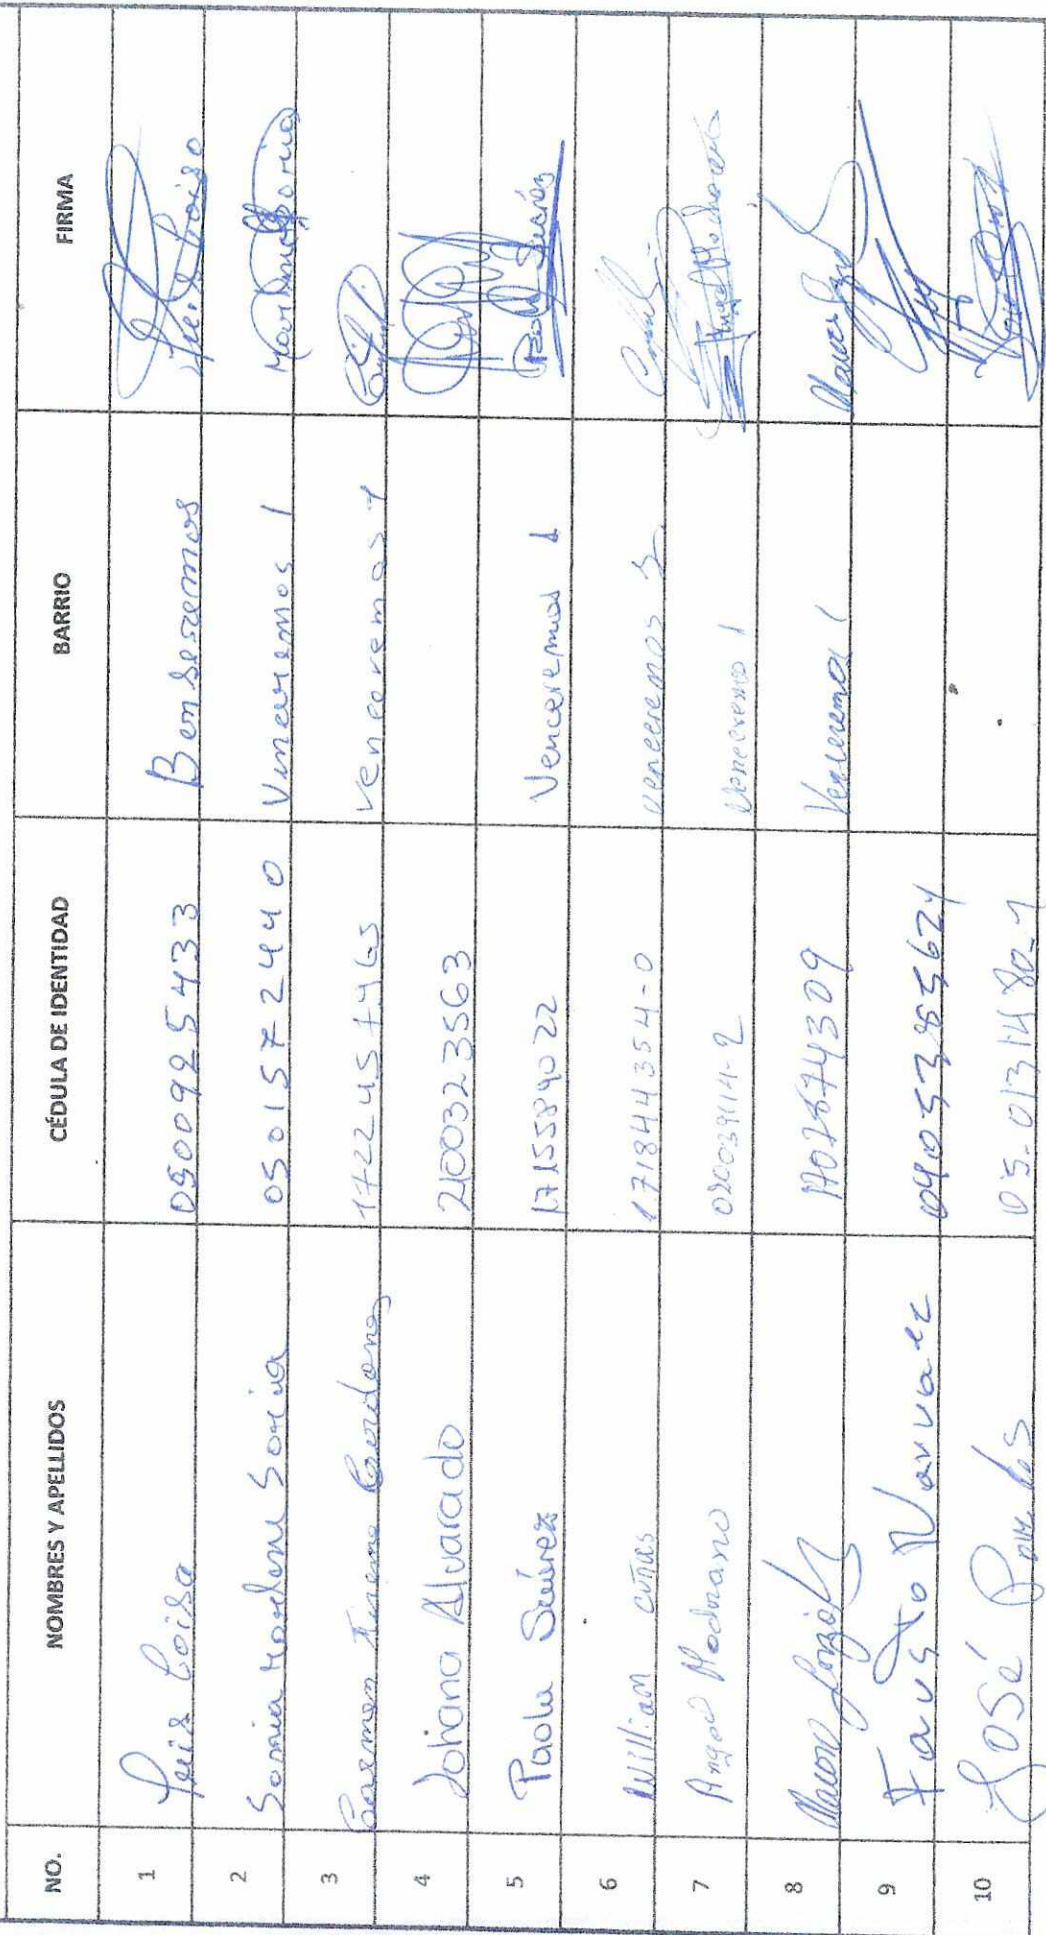 NO. NOMBRES Y APELLIDOS CÉDULA DE IDENTIDAD BARRIO FIRMA
1 Luis Coiso 0500925433 Benseremos Luis Coiso
2 Sonia Marlene Soria 0501572440 Vinceremos 1
3 Carmen Cardona 1722457465 venceremos 1
4 Johana Alvarado 2100323563
5 Paola Suárez 1715589022 Venceremos 1 Paola Suárez
6 William cunas 171844354-0 venceremos
7 Angel Medrano 020039114-2 Venceremo 1 Angel Medrano
8 Marco 1702674309 Venceremos 1
9 Fausto Narvaez
10 José 05-0131480-1